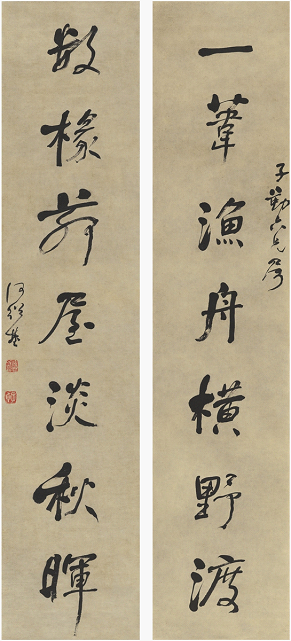 一葦漁舟橫野渡
子勤六兄屬
數椽茅屋淡秋暉
何紹基